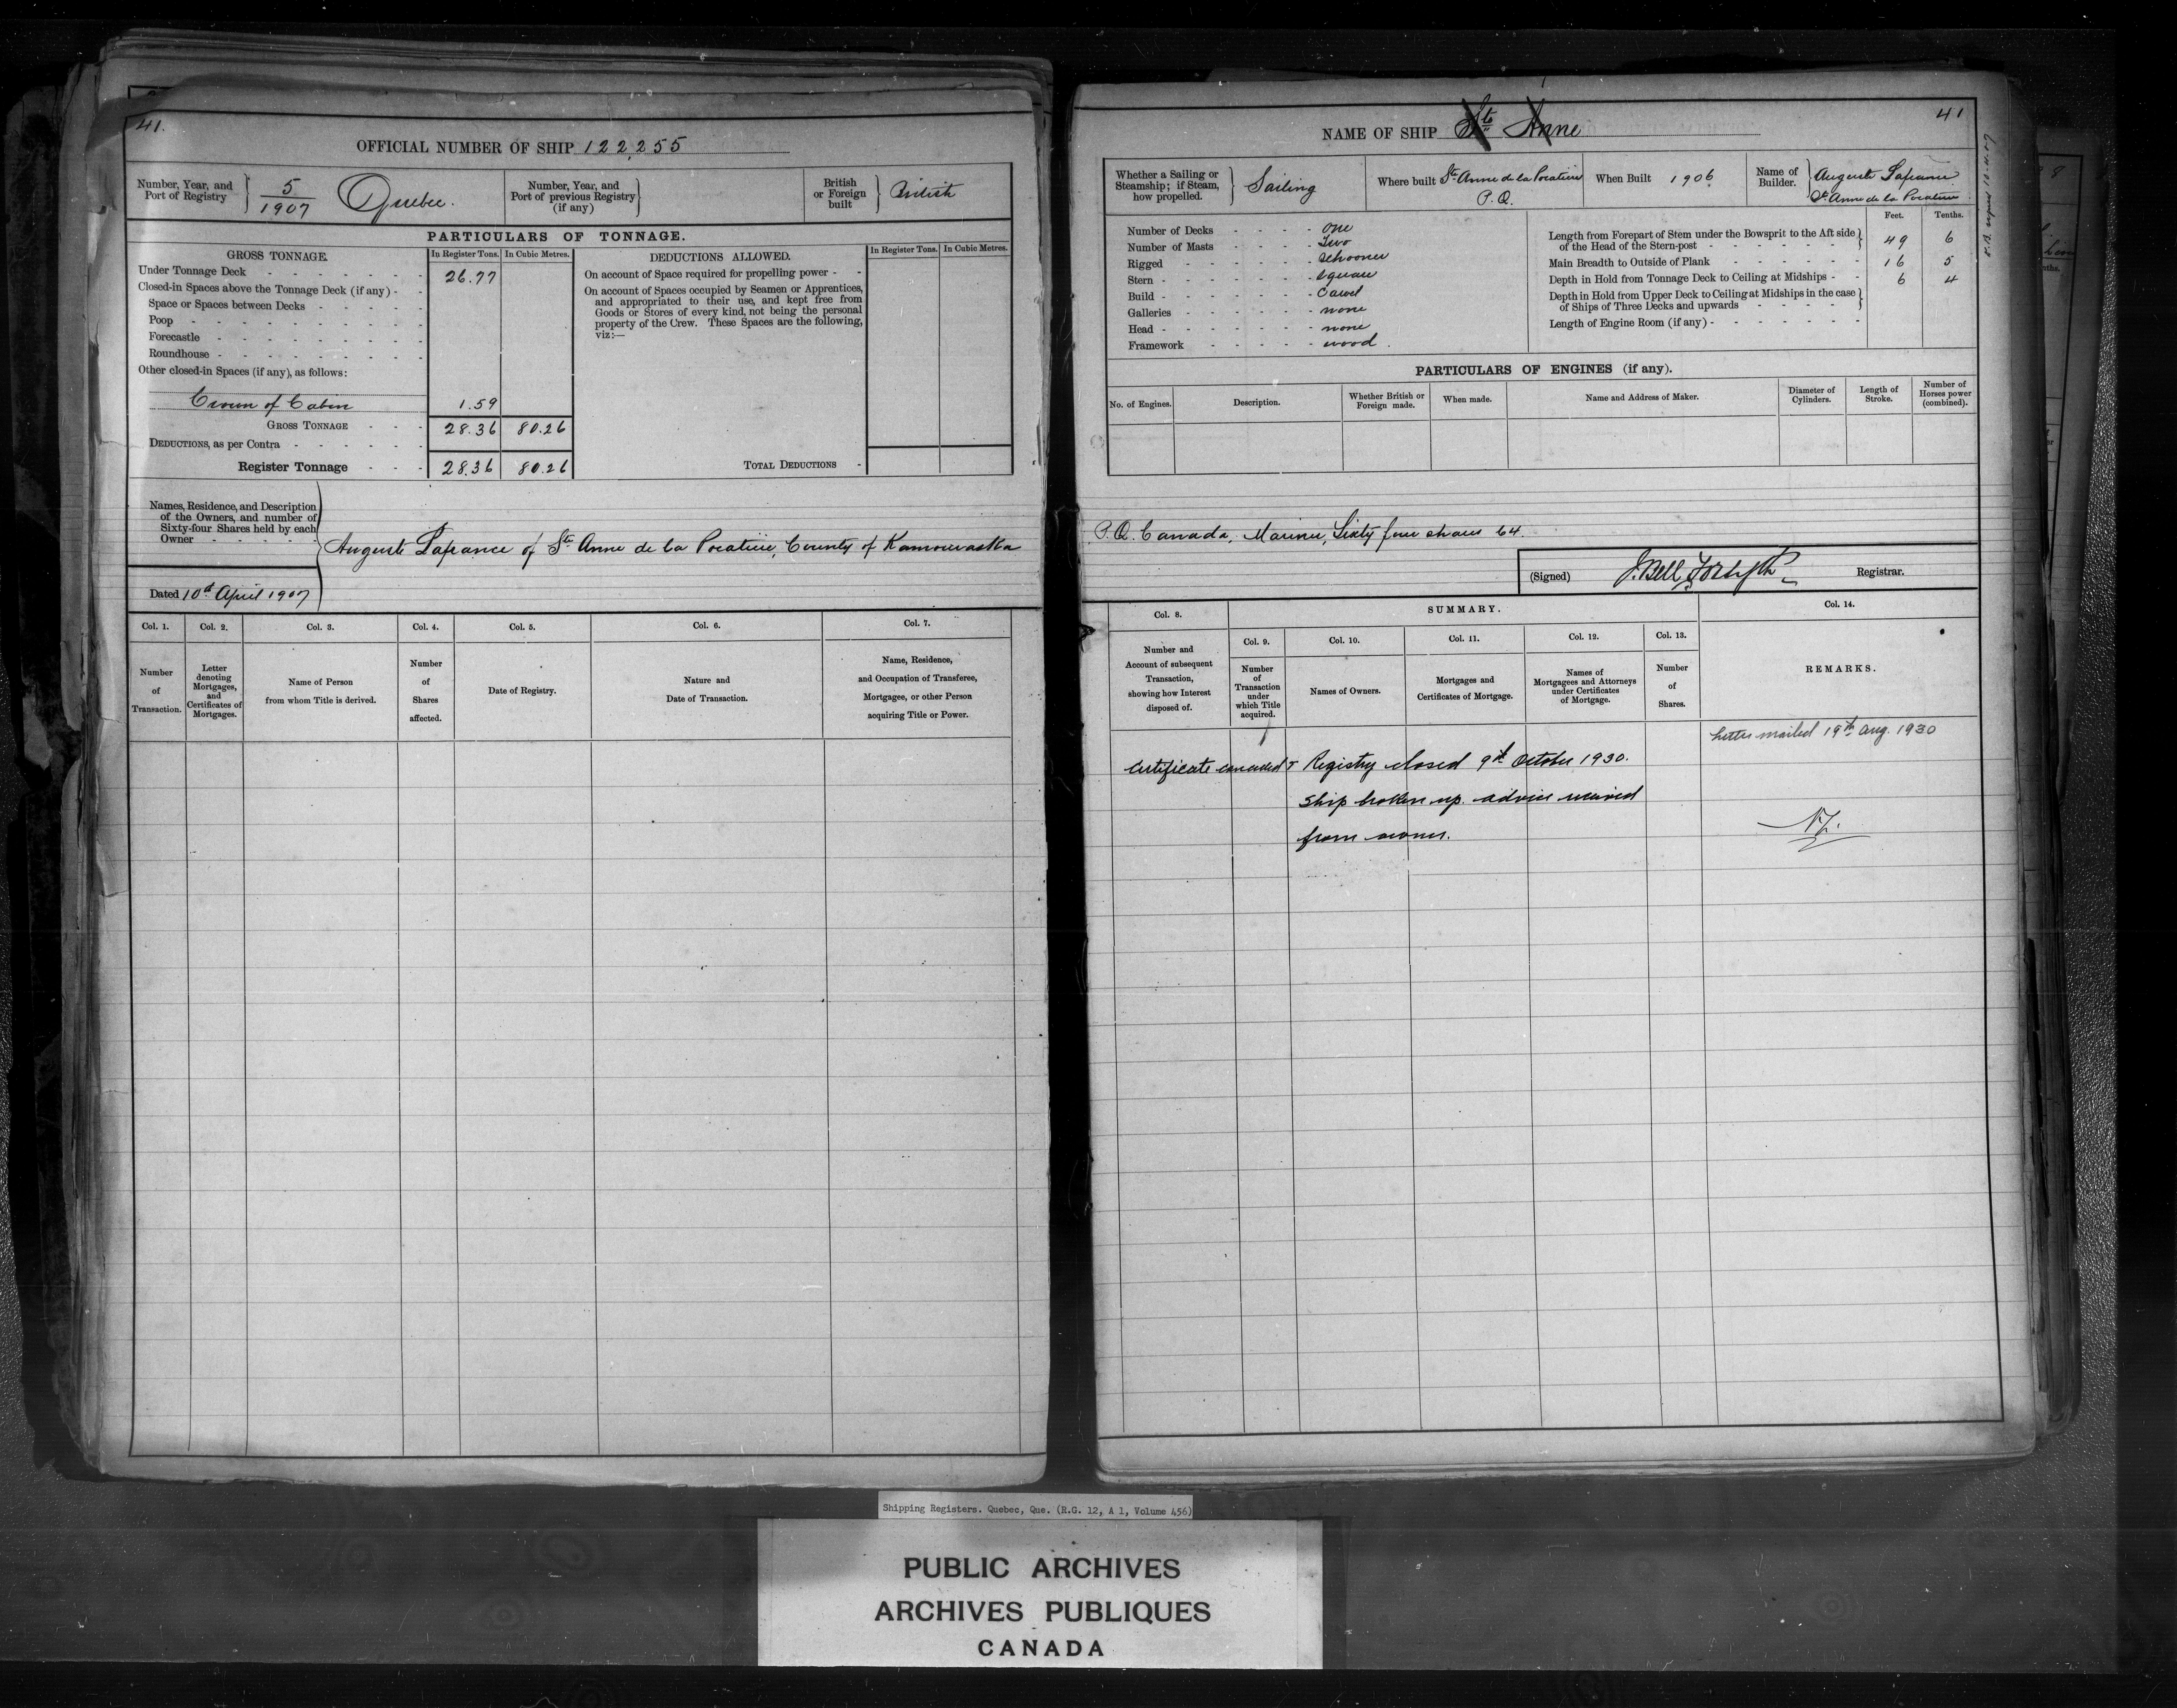 41.
OFFICIAL NUMBER OF SHIP 122,255
Number, Year, and Port of Registry 5/1907 Quebec.
Number, Year, and Port of previous Registry (if any)
British or Foreign built British
PARTICULARS OF TONNAGE.
GROSS TONNAGE. In Register Tons. In Cubic Metres.
Under Tonnage Deck 26.77
Closed-in Spaces above the Tonnage Deck (if any)
Space or Spaces between Decks
Poop
Forecastle
Roundhouse
Other closed-in Spaces (if any), as follows:
Crown of Cabin 1.59
GROSS TONNAGE 28.36 80.26
DEDUCTIONS, as per Contra
Register Tonnage 28.36 80.26
DEDUCTIONS ALLOWED. In Register Tons. In Cubic Metres.
On account of Space required for propelling power
On account of Spaces occupied by Seamen or Apprentices,
and appropriated to their use, and kept free from
Goods or Stores of every kind, not being the personal
property of the Crew. These Spaces are the following,
viz:—
TOTAL DEDUCTIONS
Names, Residence, and Description
of the Owners, and number of
Sixty-four Shares held by each
Owner
Auguste Lafrance of Ste Anne de la Pocatiere, County of Kamouraska
Dated 10th April 1907
Col. 1. Col. 2. Col. 3. Col. 4. Col. 5. Col. 6. Col. 7.
Number of Transaction.
Letter denoting Mortgages, and Certificates of Mortgages.
Name of Person from whom Title is derived.
Number of Shares affected.
Date of Registry.
Nature and Date of Transaction.
Name, Residence, and Occupation of Transferee, Mortgagee, or other Person acquiring Title or Power.
41
NAME OF SHIP Ste Anne
Whether a Sailing or Steamship; if Steam, how propelled. Sailing
Where built Ste Anne de la Pocatiere P.Q.
When Built 1906
Name of Builder. Auguste Lafrance Ste Anne de la Pocatiere
Number of Decks One
Number of Masts Two
Rigged Schooner
Stern square
Build Carvel
Galleries none
Head none
Framework wood.
Feet. Tenths.
Length from Forepart of Stem under the Bowsprit to the Aft side of the Head of the Stern-post 49 6
Main Breadth to Outside of Plank 16 5
Depth in Hold from Tonnage Deck to Ceiling at Midships 6 4
Depth in Hold from Upper Deck to Ceiling at Midships in the case of Ships of Three Decks and upwards
Length of Engine Room (if any)
PARTICULARS OF ENGINES (if any).
No. of Engines. Description. Whether British or Foreign made. When made. Name and Address of Maker. Diameter of Cylinders. Length of Stroke. Number of Horses power (combined).
P.Q. Canada, Mariner, Sixty four shares 64.
(Signed) J. Bell Forsyth Registrar.
Col. 8. SUMMARY. Col. 14.
Col. 9. Col. 10. Col. 11. Col. 12. Col. 13.
Number and Account of subsequent Transaction, showing how Interest disposed of.
Number of Transaction under which Title acquired.
Names of Owners.
Mortgages and Certificates of Mortgage.
Names of Mortgagees and Attorneys under Certificates of Mortgage.
Number of Shares.
REMARKS.
Letter mailed 19th Aug. 1930
Certificate cancelled & Registry closed 9th October 1930.
Ship broken up. advice received
from owner.
Shipping Registers. Quebec, Que. (R.G. 12, A 1, Volume 456)
PUBLIC ARCHIVES
ARCHIVES PUBLIQUES
CANADA